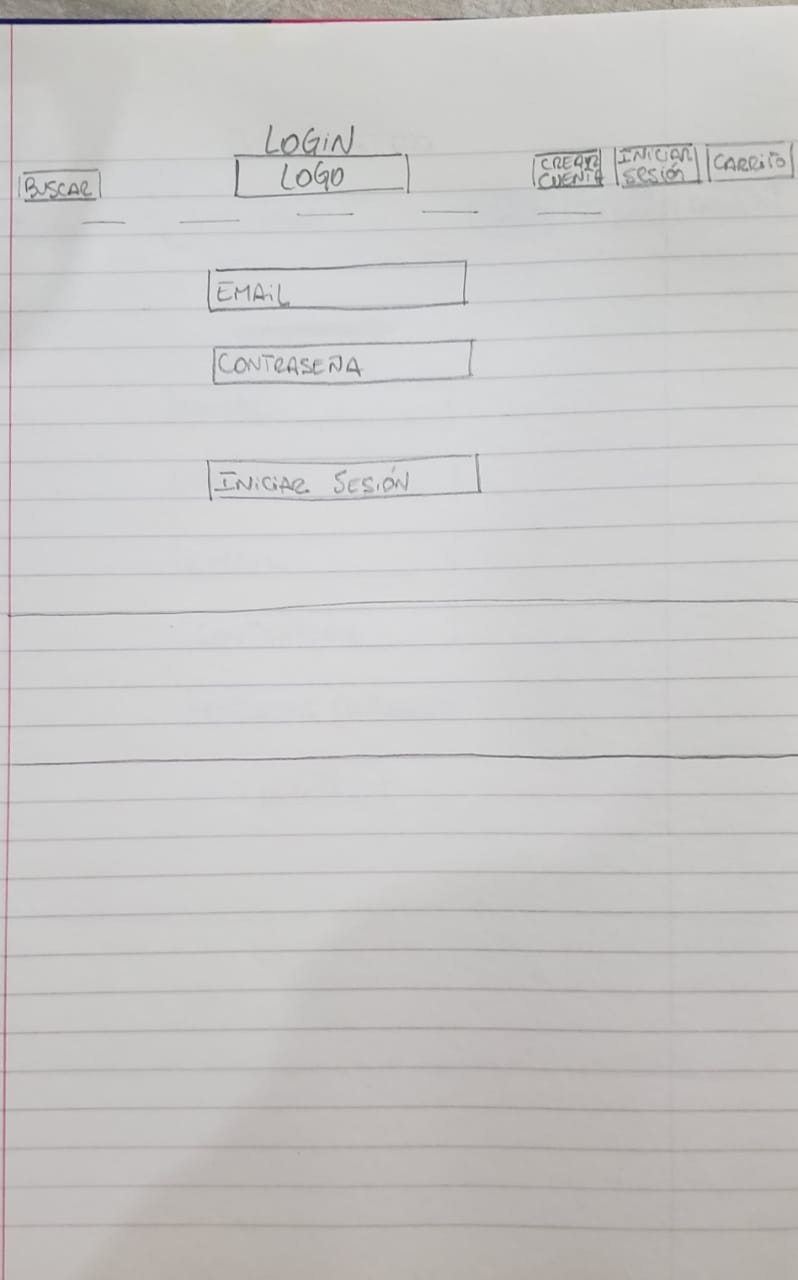 LOGIN
BUSCAR
LOGO
CREAR
CUENTA
INICIAR
SESIÓN
CARRITO
EMAIL
CONTRASEÑA
INICIAR SESIÓN